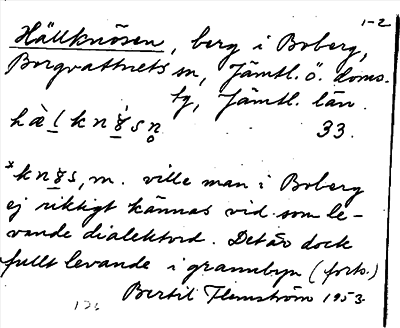 1-2
Hällknösen, berg i Boberg,
Borgvattnets sn, Jämtl. ö. doms.
tg, Jämtl. län.
33.
*
ville man i Boberg
ej riktigt kännas vid som le-
vande dialektord. Det är dock
fullt levande i grannbyn (forts.)
Bertil Flemström 1953